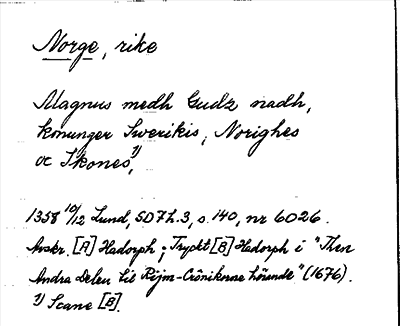 Norge, rike
Magnus medh Gudz nadh,
konunger Swerikis, Norighes
oc Skones,¹⁾
1358 10/12 Lund, SD 7h.3, s. 140, nr 6026.
Avskr. [A] Hadorph; Tryckt [B] Hadorph i "Then
Andra Delen til Rijm-Crönikone hörande" (1676).
¹⁾ Scane [B].